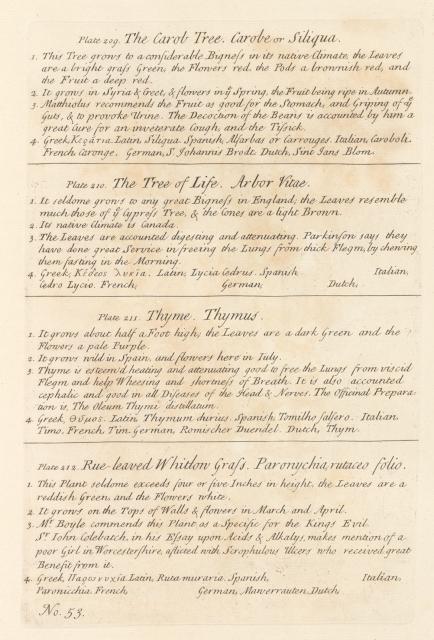 Plate 209. The Carob Tree. Carobe or Siliqua.
1. This Tree grows to a considerable Bigneſs in its native Climate, the Leaves
are a bright graſs Green, the Flowers red, the Pods a brownish red, and
the Fruit a deep red.
2. It grows in Syria & Creet, & flowers in ẏ Spring, the Fruit being ripe in Autumn.
3. Matthiolus recommends the Fruit as good for the Stomach, and Griping of ẏ
Guts, & to provoke Urine. The Decoction of the Beans is accounted by him a
great Cure for an inveterate Cough, and the Tiſsick.
4. Greek, Κεράτια. Latin, Siliqua. Spanish, Alfarbas or Carrouges. Italian, Caroboli.
French, Caronge. German, S. Johannis Brodt. Dutch, Sint Jans Blom.
Plate 210. The Tree of Life. Arbor Vitae.
1. It seldome grows to any great Bigneſs in England; the Leaves resemble
much those of ẏ Cypreſs Tree, & the Cones are a light Brown.
2. Its native Climate is Canada.
3. The Leaves are accounted digesting and attenuating. Parkinſon says they
have done great Service in freeing the Lungs from thick Flegm, by chewing
them fasting in the Morning.
4. Greek, Κέδρος λυκία. Latin, Lycia Cedrus. Spanish Italian,
Cedro Lycio. French, German, Dutch,
Plate 211. Thyme. Thymus.
1. It grows about half a Foot high, the Leaves are a dark Green and the
Flowers a pale Purple.
2. It grows wild in Spain, and flowers here in July.
3. Thyme is esteem'd heating and attenuating good to free the Lungs from viscid
Flegm and help Wheesing and shortneſs of Breath. It is also accounted
cephalic and good in all Diſeases of the Head & Nerves. The Officinal Prepara-
tion is, The Oleum Thymi distillatum.
4. Greek, Θύμος. Latin, Thymum durius. Spanish, Tomilho salsero. Italian.
Timo. French, Tim. German, Romischer Quendel. Dutch, Thym.
Plate 212. Rue-leaved Whitlow Graſs. Paronychia rutaceo folio.
1. This Plant seldome exceeds four or five Inches in height, the Leaves are a
reddish Green, and the Flowers white.
2. It grows on the Tops of Walls & flowers in March and April.
3. Mr. Boyle commends this Plant as a Specific for the Kings Evil.
Sr. John Colebatch, in his Eſsay upon Acids & Alkalys, makes mention of a
poor Girl in Worcesterſhire, aflicted with Scrophulous Ulcers who received great
Benefit from it.
4. Greek, Παρονυχία. Latin, Ruta muraria. Spanish, Italian,
Paronicchia. French, German, Mawerrauten. Dutch,
No. 53.